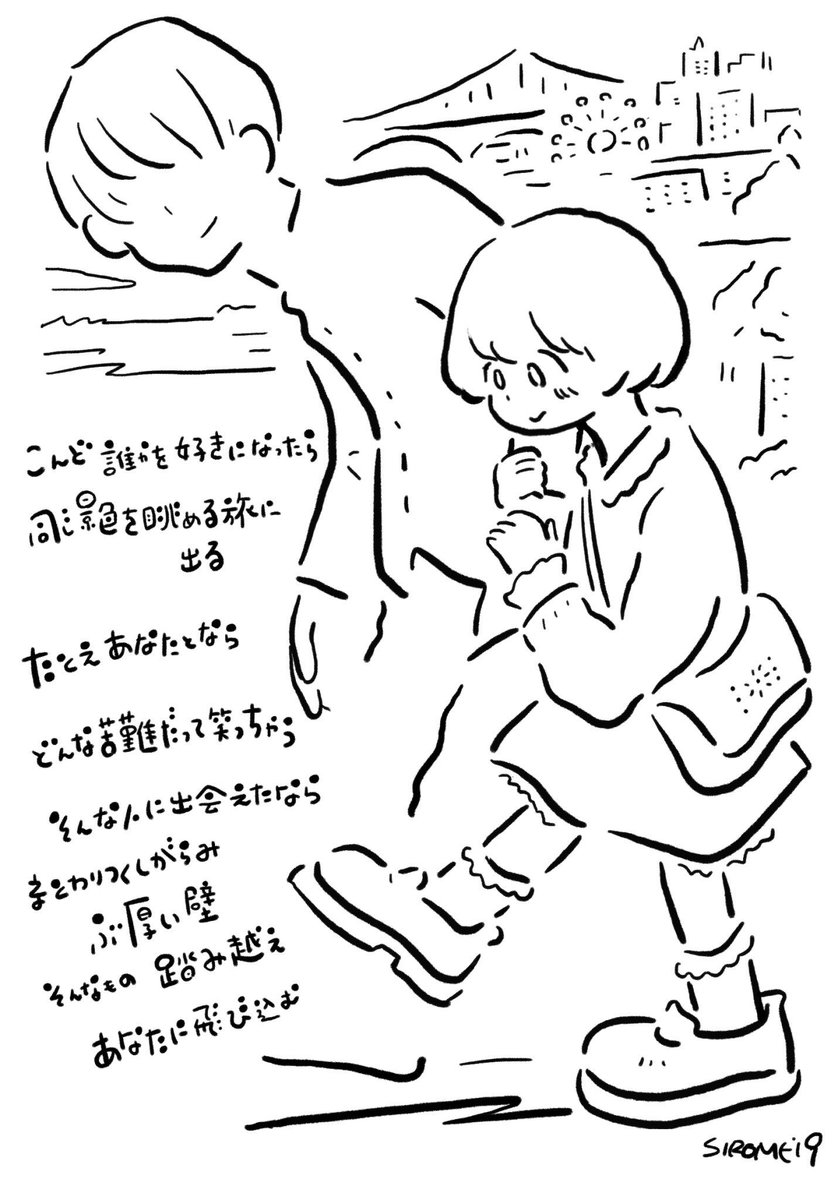 こんど誰かを好きになったら
同じ景色を眺める旅に
出る
たとえあなたとなら
どんな苦難だって笑っちゃう
そんな人に出会えたなら
まとわりつくしがらみ
ぶ厚い壁
そんなもの踏み越え
あなたに飛び込む
SIROMEi9